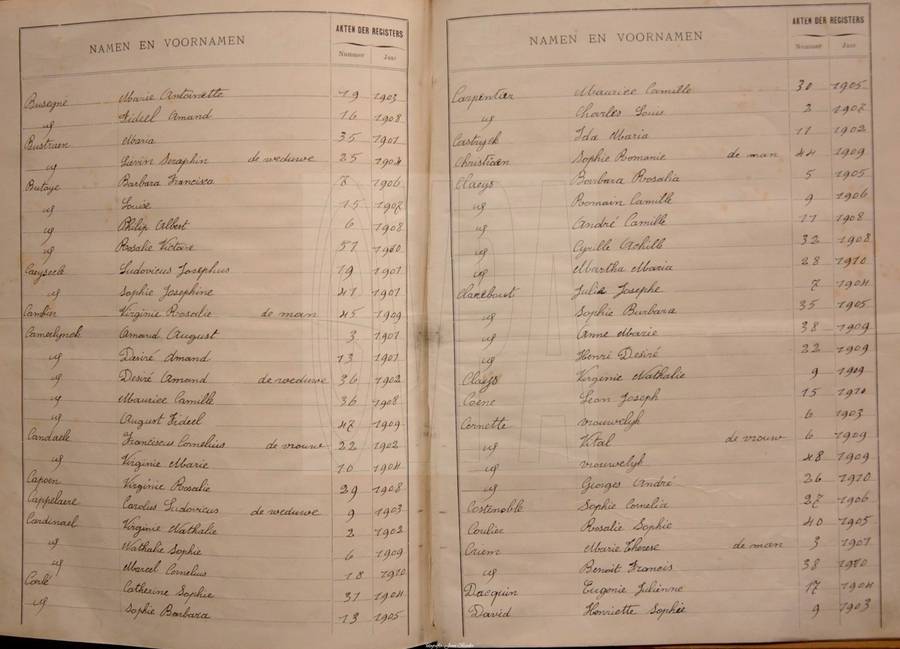 NAMEN EN VOORNAMEN AKTEN DER REGISTERS
Nummer Jaar
Busegne Marie Antoinette 19 1903
ug Fideel Amand 16 1908
Bustraen Maria 35 1901
ug Livin Seraphin de weduwe 25 1904
Butaye Barbara Francisca 7 1906
ug Louise 15 1907
ug Philip Albert 6 1908
ug Rosalie Victoire 51 1910
Caeyseele Ludovicus Josephus 19 1901
ug Sophie Josephine 41 1901
Cambier Virginie Rosalie de man 45 1909
Camerlynck Amand August 3 1901
ug Désiré Amand 13 1901
ug Desiré Amand de weduwe 36 1902
ug Maurice Camille 36 1908
ug August Fideel 47 1909
Candaele Franciscus Cornelius de vrouw 22 1902
ug Virginie Marie 10 1904
Capoen Virginie Rosalie 29 1908
Cappelaere Carolus Ludovicus de weduwe 9 1903
Cardinael Virginie Nathalie 2 1902
ug Nathalie Sophie 6 1909
ug Marcel Cornelius 18 1910
Carlé Catherine Sophie 31 1904
ug Sophie Barbara 13 1905
NAMEN EN VOORNAMEN AKTEN DER REGISTERS
Nummer Jaar
Carpentier Maurice Camille 30 1905
ug Charles Louis 2 1907
Castryck Ida Maria 11 1902
Christiaen Sophie Romanie de man 44 1909
Claeys Barbara Rosalia 5 1905
ug Romain Camille 9 1906
ug André Camille 11 1908
ug Cyrille Achille 32 1908
ug Martha Maria 28 1910
Clarebout Julie Josephe 7 1904
ug Sophie Barbara 35 1905
ug Anne Marie 38 1909
ug Henri Desiré 22 1909
Claeys Virginie Nathalie 9 1909
Coene Leon Joseph 15 1910
Cornette vrouwelyk 6 1903
ug Vital de vrouw 6 1909
ug vrouwelyk 48 1909
ug Georges André 26 1910
Costenoble Sophie Cornelia 27 1906
Coulier Rosalie Sophie 40 1905
Criem Marie Therese de man 3 1901
ug Benoit Francis 38 1910
Dacquin Eugenie Julienne 17 1904
David Henriette Sophie 9 1903